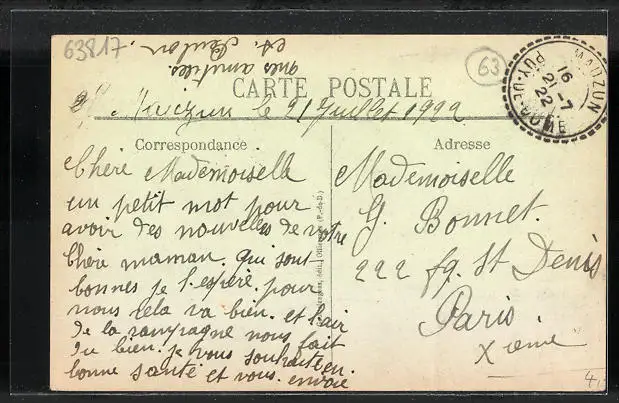 63817
mes amitiés
A. Paulon.
CARTE POSTALE
63
MAUZUN
PUY-DE-DOME
16
21-7
22
Mauzun le 21 Juillet 1922
Correspondance
Chère Mademoiselle
un petit mot pour
avoir des nouvelles de votre
Chère maman. qui sont
bonnes je l'espère. pour
nous cela va bien. et l'air
de la campagne nous fait
du bien. je vous souhaite en.
bonne santé et vous. envoie
édit., Olliergues (P.-de-D.)
Adresse
Mademoiselle
G. Bonnet.
222 fg. St Denis
Paris
X ème